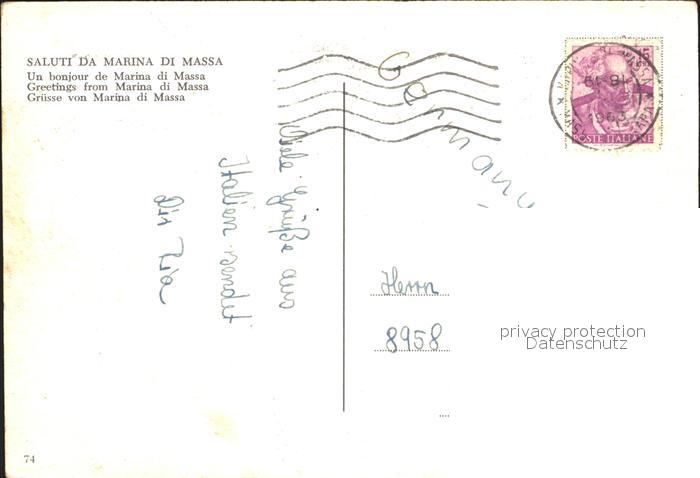 SALUTI DA MARINA DI MASSA
Un bonjour de Marina di Massa
Greetings from Marina di Massa
Grüsse von Marina di Massa
Viele Grüße aus
Italien sendet
dir
Germany
15
1963
POSTE ITALIANE
Herrn
8958
privacy protection
Datenschutz
74